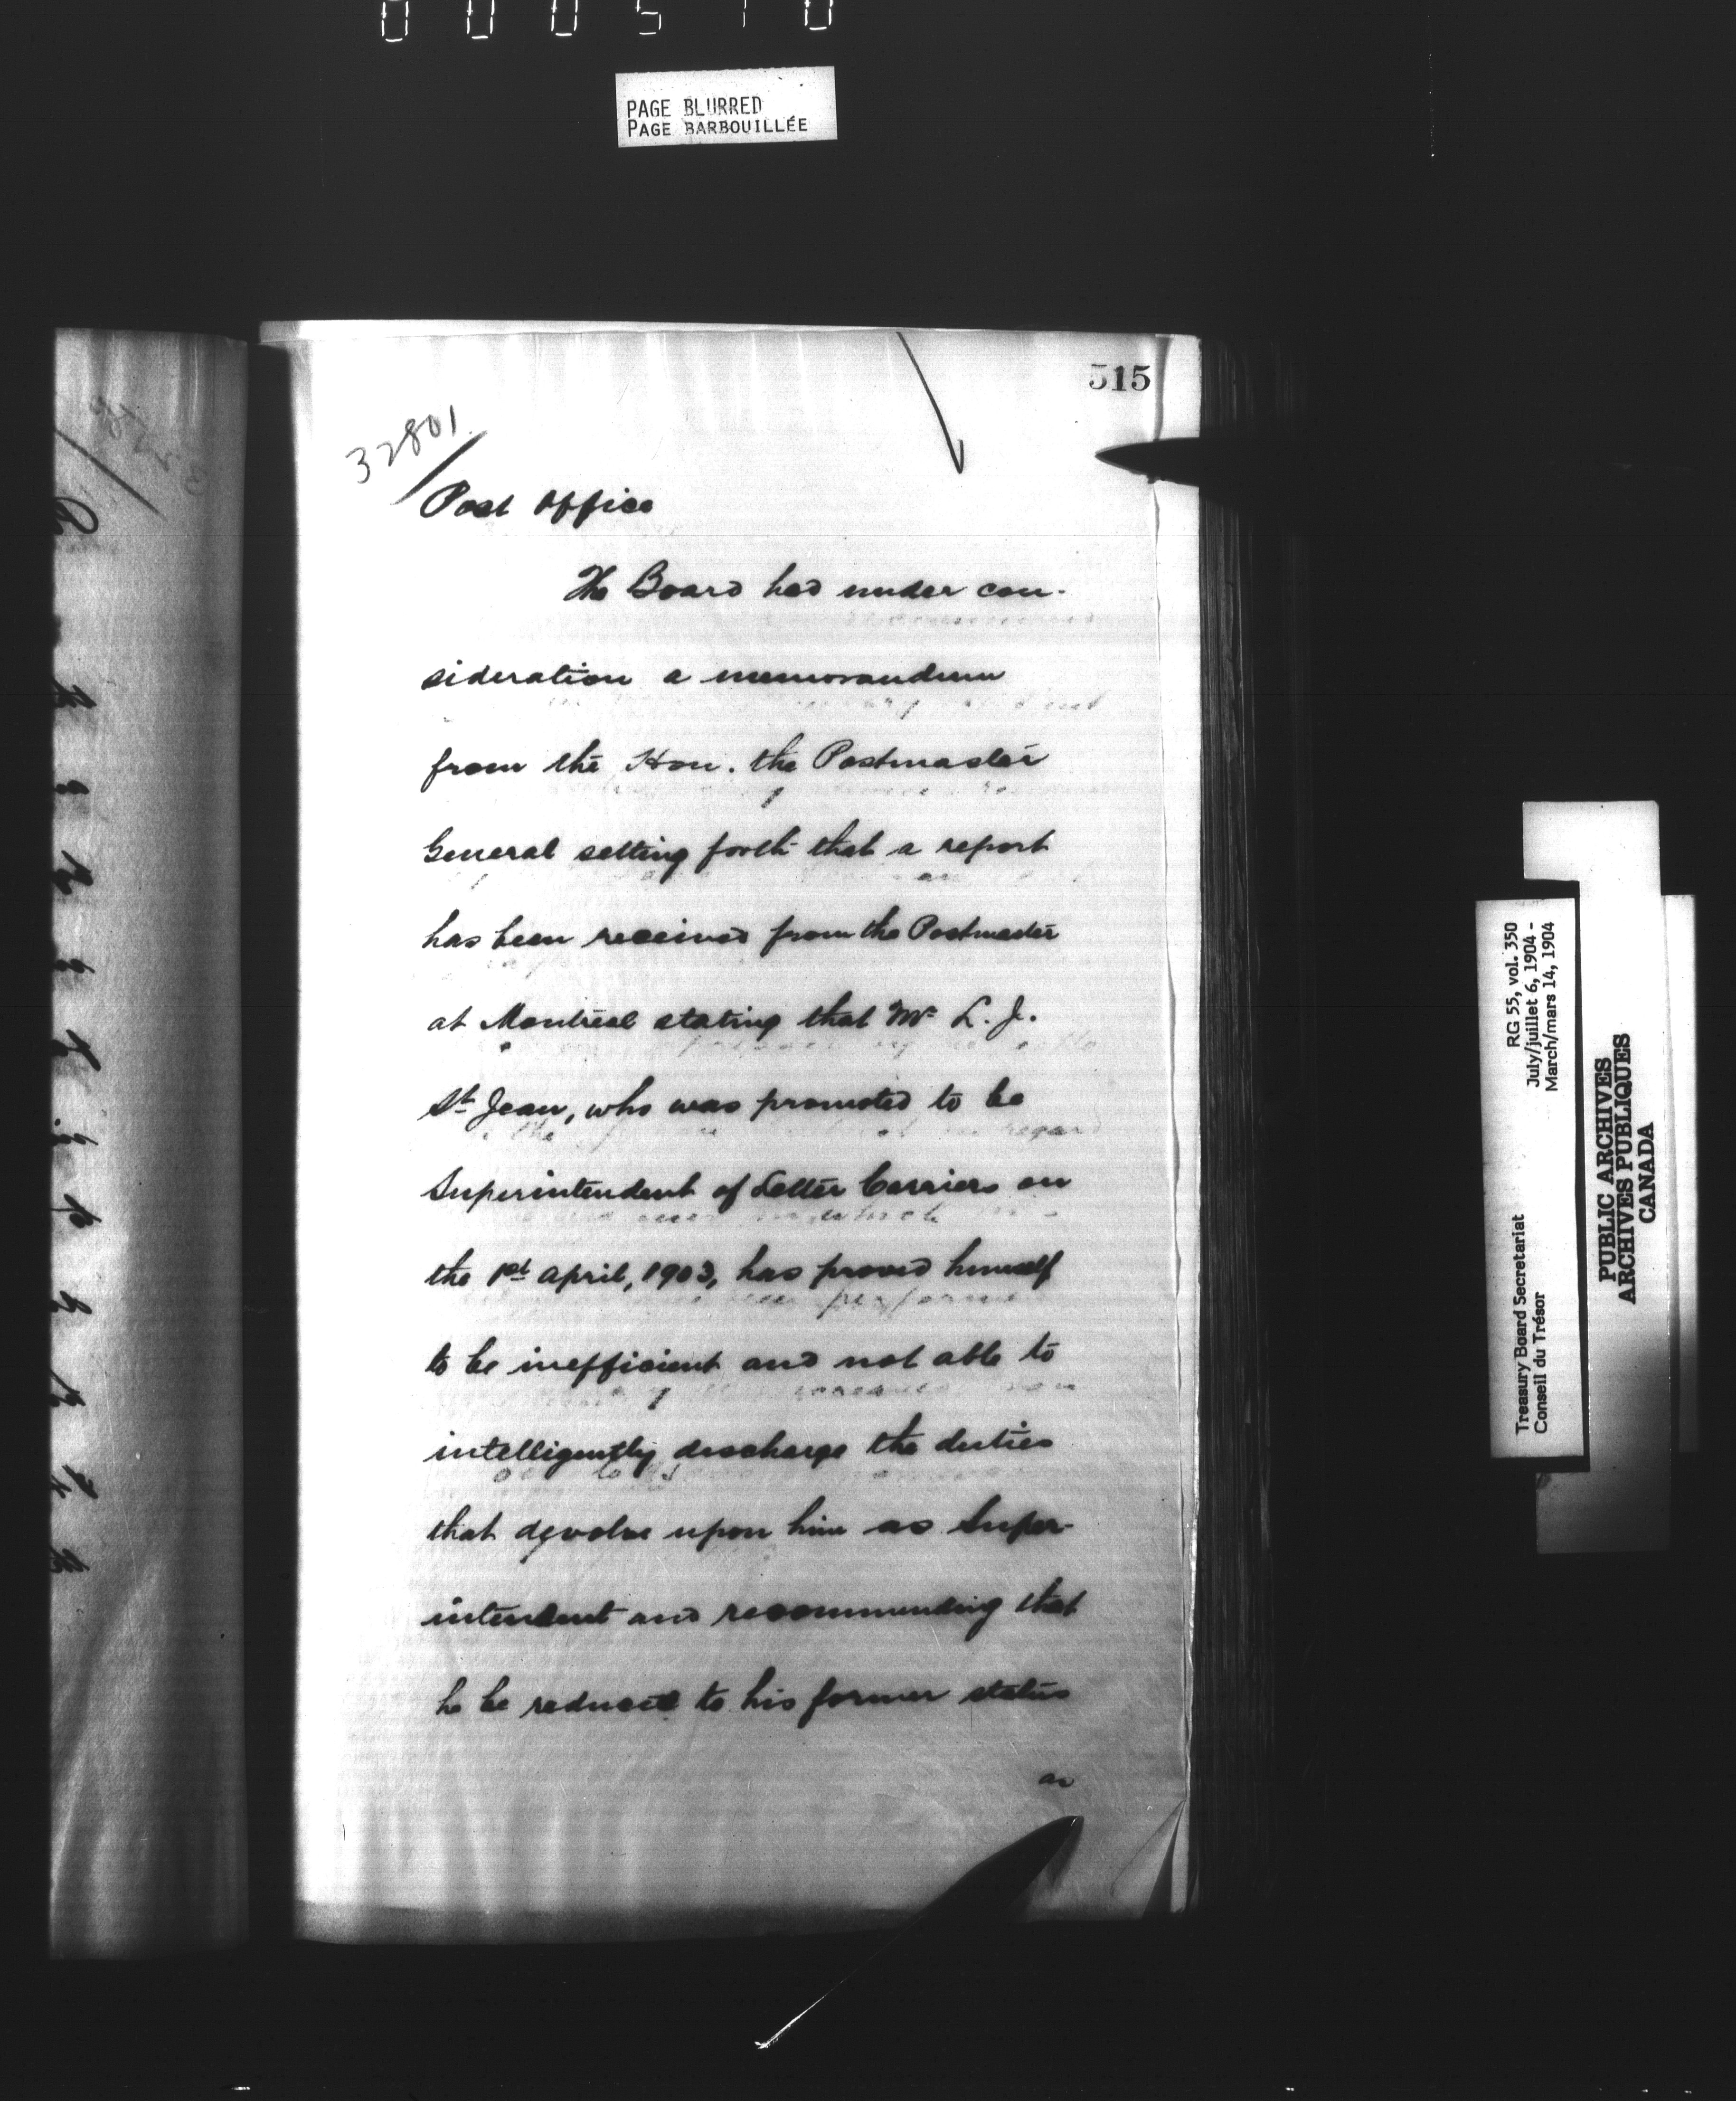 PAGE BLURRED
PAGE BARBOUILLÉE
515
32801
Post Office
The Board had under con-
sideration a memorandum
from the Hon. the Postmaster
General setting forth that a report
has been received from the Postmaster
at Montreal stating that Mr L. J.
St Jean, who was promoted to be
Superintendent of Letter Carriers on
the 1st April, 1903, has proved himself
to be inefficient and not able to
intelligently discharge the duties
that devolve upon him as Super-
intendent and recommending that
he be reduced to his former status
as
Treasury Board Secretariat RG 55, vol. 350
Conseil du Trésor July/juillet 6, 1904 -
March/mars 14, 1904
PUBLIC ARCHIVES
ARCHIVES PUBLIQUES
CANADA